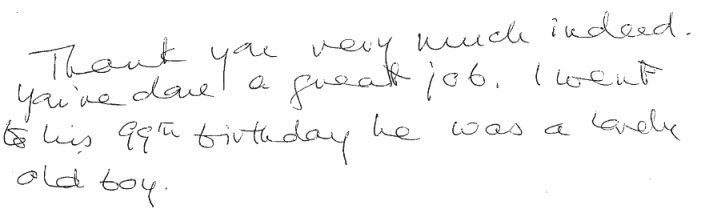 Thank you very much indeed.
You've done a great job. I went
to his 99th birthday he was a lovely
old boy.